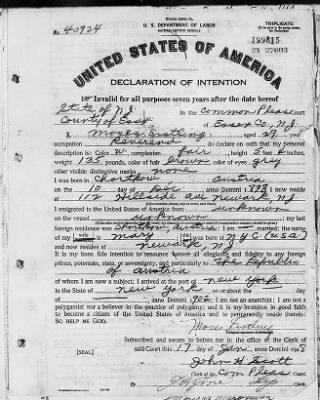 No. 40924
U. S. DEPARTMENT OF LABOR
NATURALIZATION SERVICE
TRIPLICATE
199815
2X 27603
UNITED STATES OF AMERICA
DECLARATION OF INTENTION
Invalid for all purposes seven years after the date hereof
State of N.J.
In the Common Pleas Court
County of Essex
of Essex Co., N.J.
I, Moses aged 27 years,
occupation Reverend, do declare on oath that my personal
description is: Color W, complexion fair, height 5 feet inches,
weight 135 pounds, color of hair brown, color of eyes grey
other visible distinctive marks none
I was born in Chortkow Austria
on the 10 day of Dec, anno Domini 1 893; I now reside
at 112 Hillside ave newark, N.J.
I emigrated to the United States of America from unknown
on the vessel unknown; my last
foreign residence was Chortkow, Austria; I am married; the name
of my wife is Mary; was born at N.Y.C (USA)
and now resides at newark, N.J.
It is my bona fide intention to renounce forever all allegiance and fidelity to any foreign
prince, potentate, state, or sovereignty, and particularly to The Republic
of Austria
of whom I am now a subject; I arrived at the port of new York, in the
State of new York, on or about the day
of, anno Domini 1 902; I am not an anarchist; I am not a
polygamist nor a believer in the practice of polygamy; and it is my intention in good faith
to become a citizen of the United States of America and to permanently reside therein:
SO HELP ME GOD.
Subscribed and sworn to before me in the office of the Clerk of
said Court this 17 day of Jan, anno Domini 192
[SEAL]
John H Scott
Clerk of the Com Pleas Court.